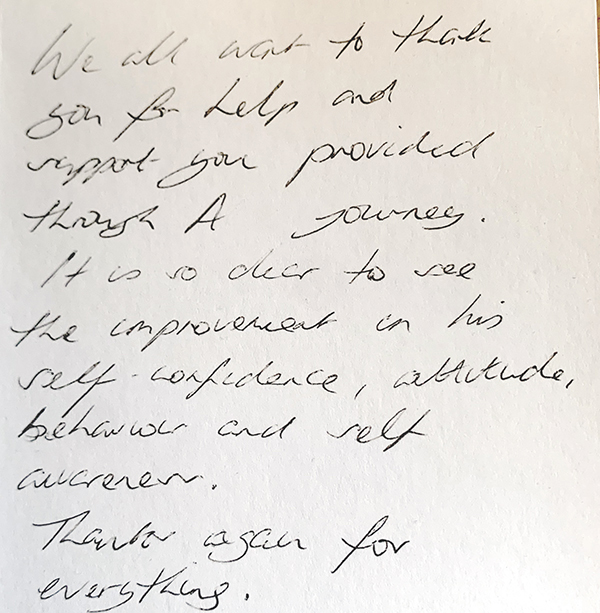 We all want to thank
you for help and
support you provided
through A journey.
It is so clear to see
the improvement in his
self-confidence, attitude,
behaviour and self
awareness.
Thanks again for
everything.